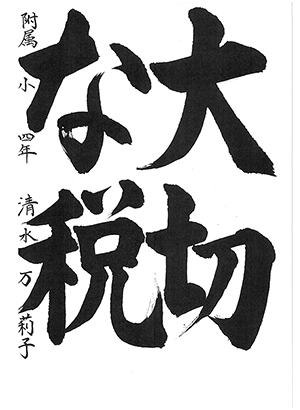 大切
な税
附属小 四年 清水万莉子